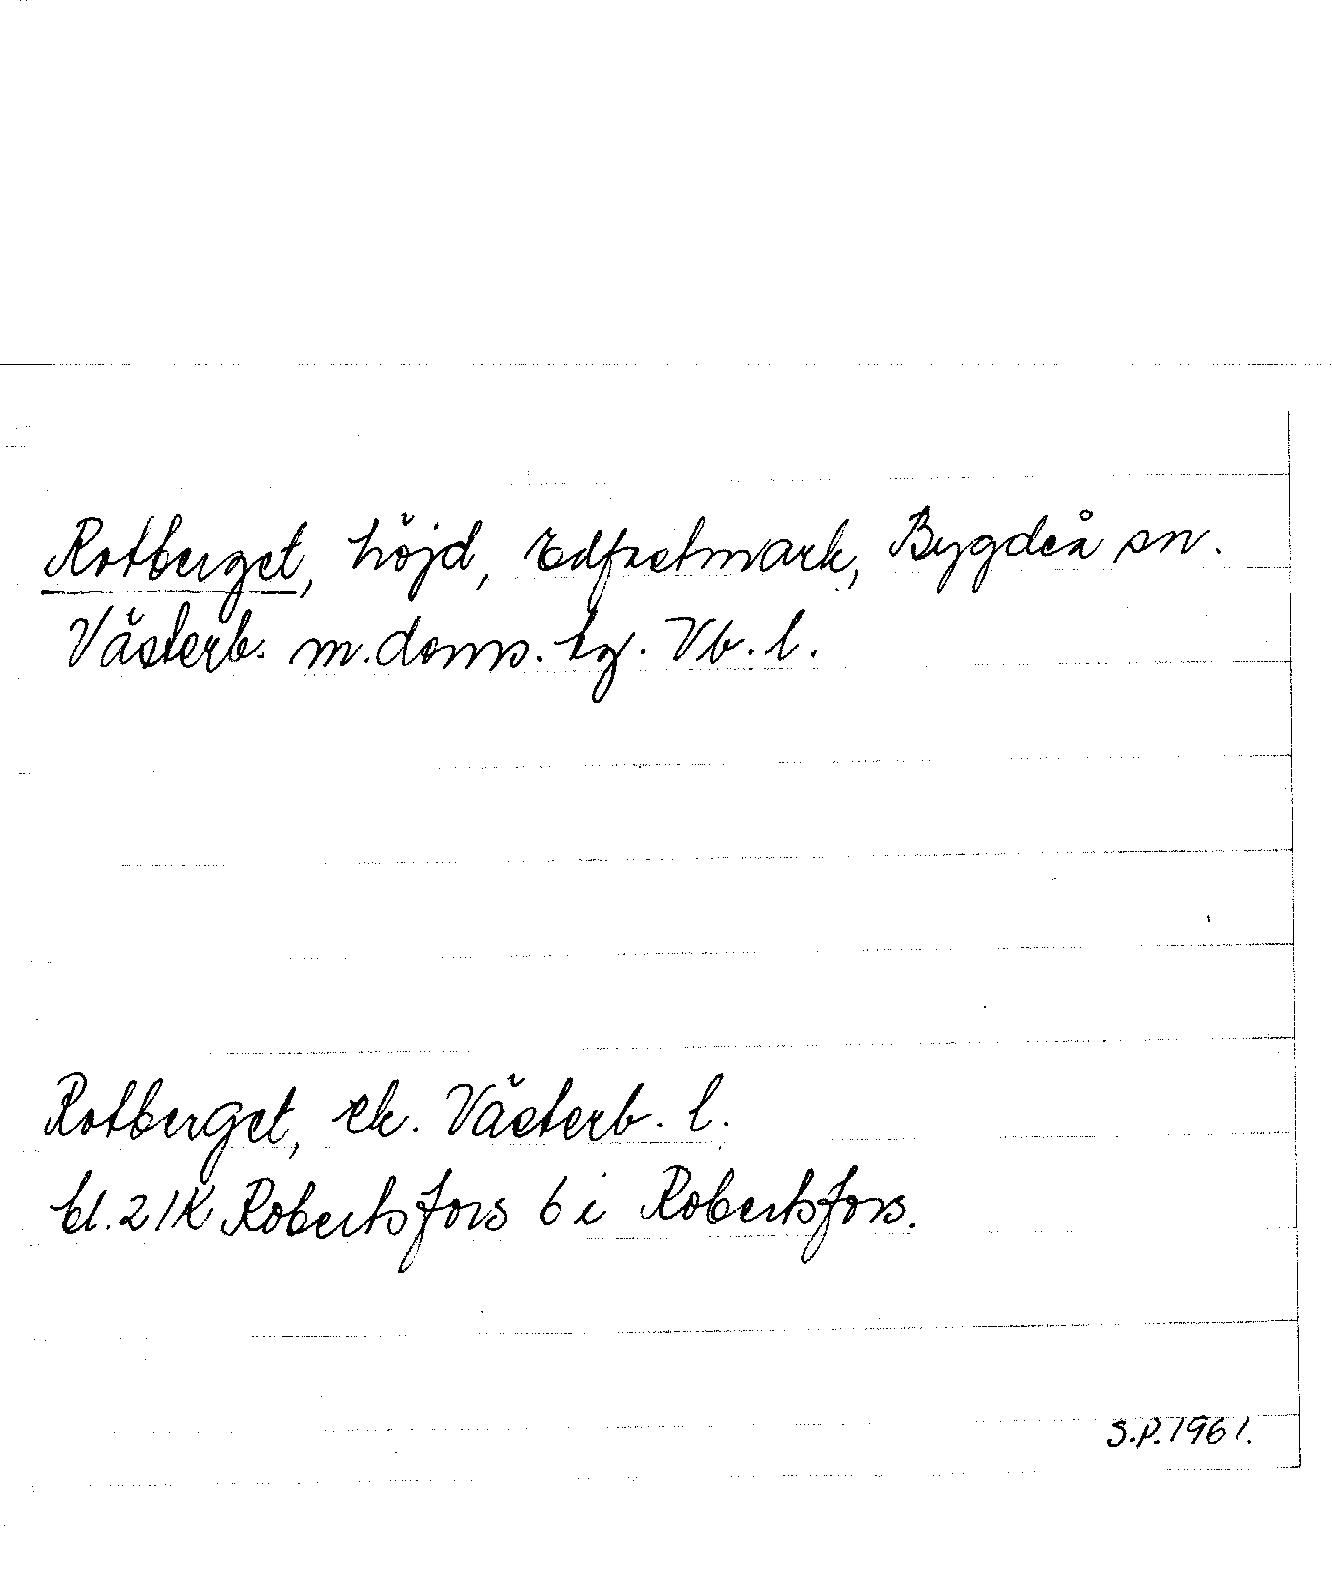 Rotberget, höjd, Edfastmark, Bygdeå sn.
Västerb. m. doms. tg. Vb. l.
Rotberget, ek. Västerb. l.
bl. 21K Robertsfors 6 i Robertsfors.
S.P. 1961.